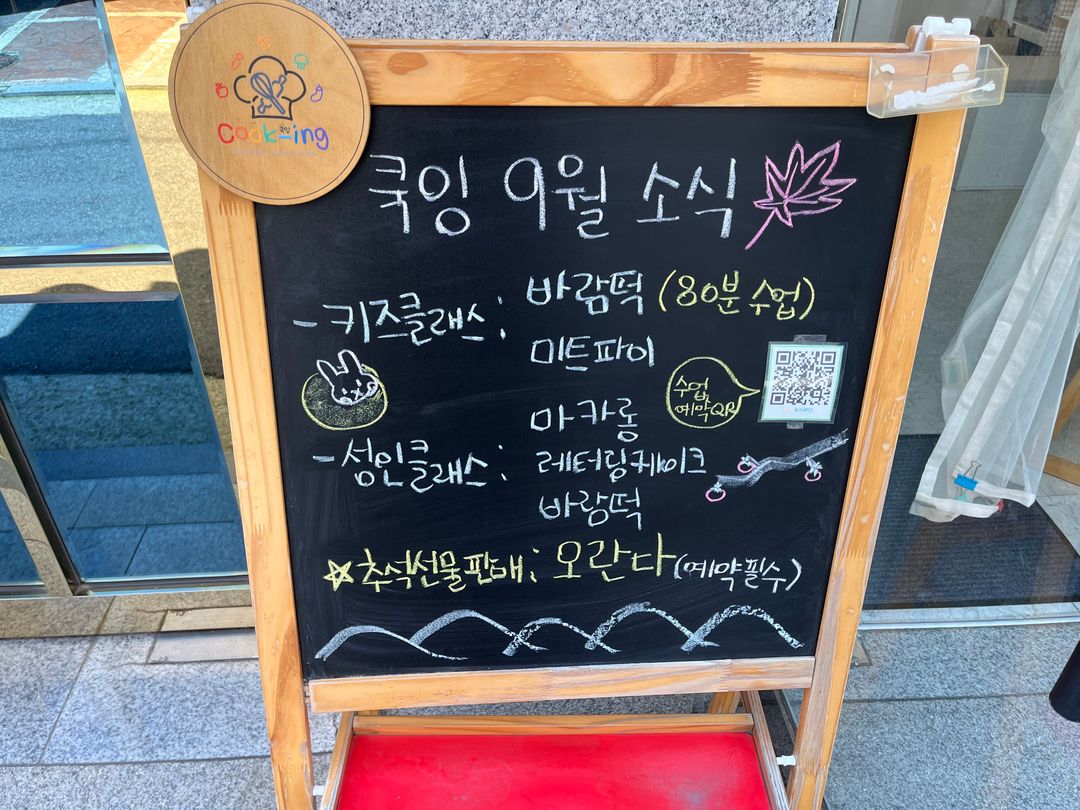 쿡잉
Cook-ing
쿡잉 9월 소식
- 키즈클래스 : 바람떡 (80분 수업)
미트파이
수업
예약QR
마카롱
- 성인클래스 : 레터링케이크
바람떡
☆추석선물판매 : 오란다 (예약필수)